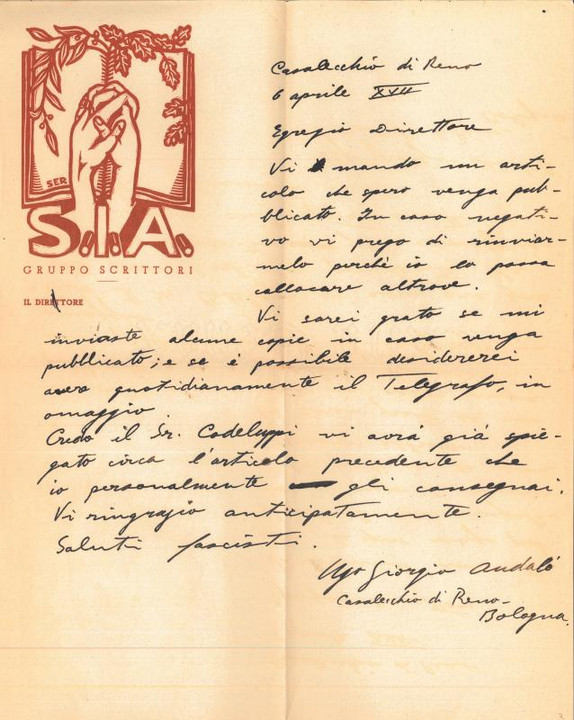 SER
S.I.A.
GRUPPO SCRITTORI
IL DIRETTORE
Casalecchio di Reno
6 aprile XVII
Egregio Direttore
Vi mando un arti-
colo che spero venga pub-
blicato. In caso negati-
vo vi prego di rinviar-
melo perchè io lo possa
collocare altrove.
Vi sarei grato se mi
inviaste alcune copie in caso venga
pubblicato; e se è possibile desidererei
avere quotidianamente il Telegrafo, in
omaggio
Credo il Sr. Codeluppi vi avrà già spie-
gato circa l'articolo precedente che
io personalmente gli consegnai.
Vi ringrazio anticipatamente.
Saluti fascisti.
Ugo Giorgio Andalò
Casalecchio di Reno-
Bologna.